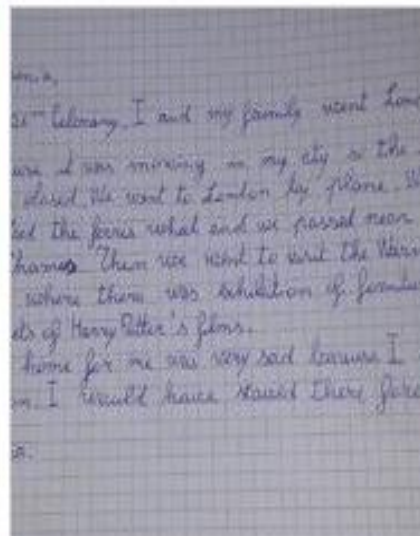 I and my family went Lon
was snowing in my city so the
closed. We went to London by plane. W
the ferris whel and we passed near
Thames. Then we went to visit the Warn
where there was exhibition of
ets of Harry Potter's films.
home for me was very sad because I
I would have staied there fore